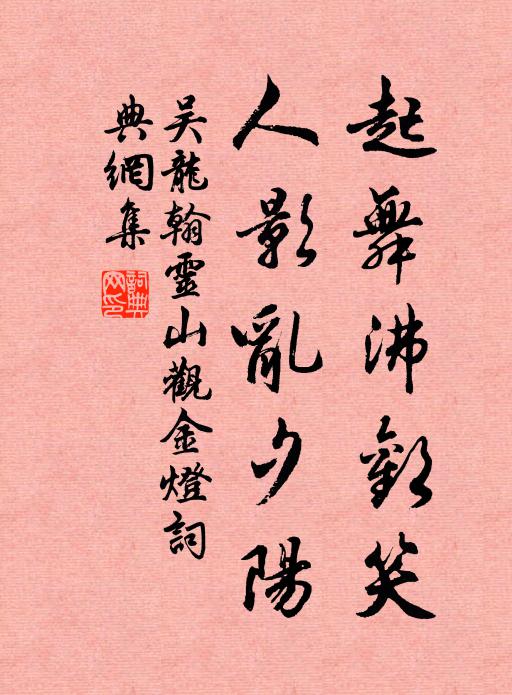 起舞沸歡笑
人影亂夕陽
吴龍翰靈山觀金燈詞
典網集
詞典網印